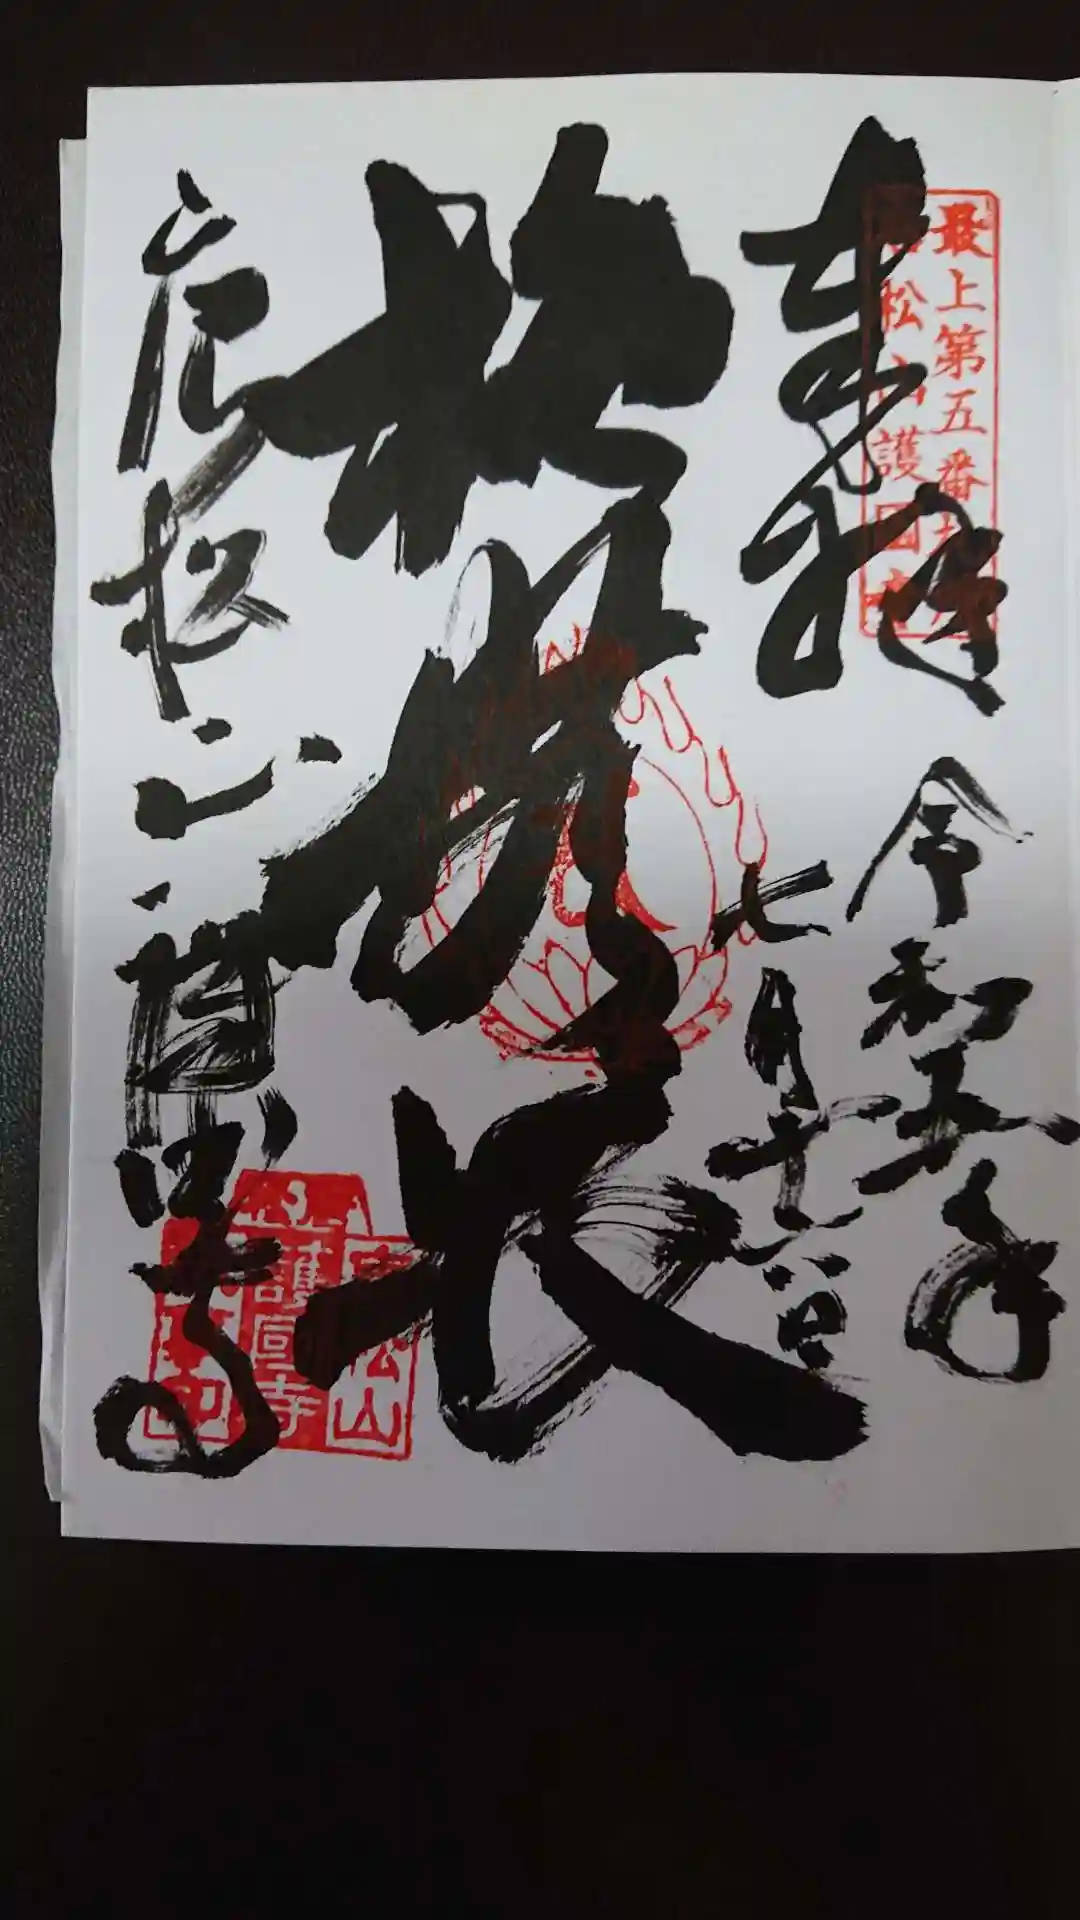 最上第五番札所
唐松山護国寺
奉拝
令和五年
七月十六日
施無畏
唐松山護国寺
唐松山
護国寺